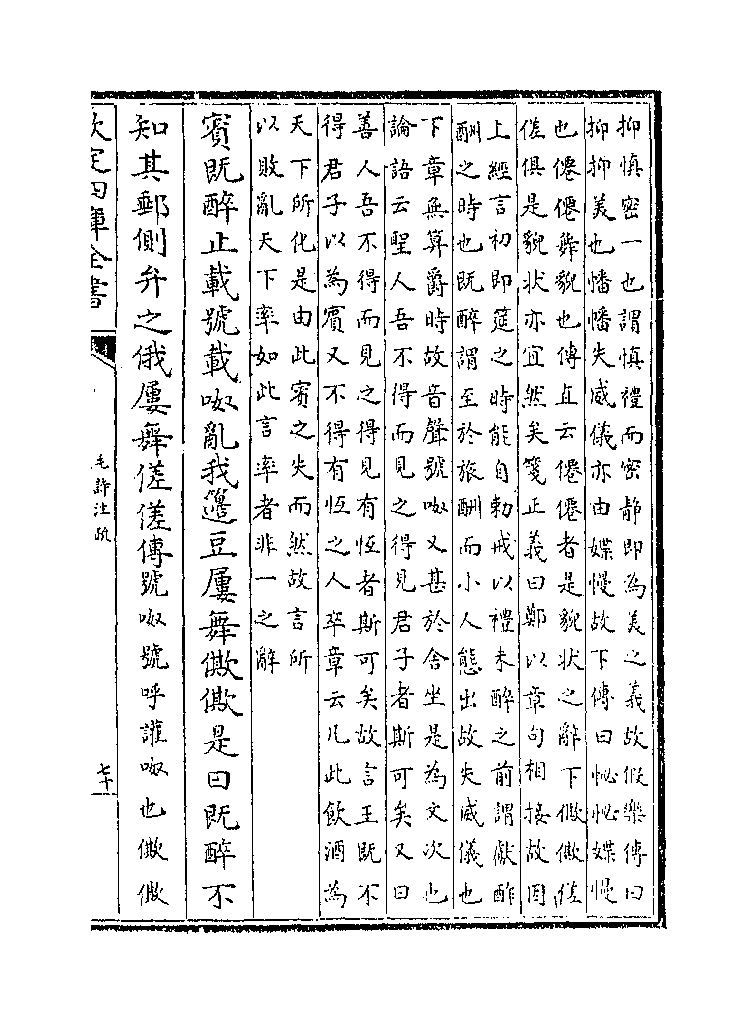 抑慎密一也謂慎禮而密静即為美之義故假樂傳曰
抑抑美也幡幡失威儀亦由媟慢故下傳曰怭怭媟慢
也僊僊舞貌也傳直云僊僊者是貌狀之辭下僛僛傞
傞俱是貌狀亦宜然矣箋正義曰鄭以章句相接故因
上經言初即筵之時能自勅戒以禮未醉之前謂獻酢
酬之時也既醉謂至於旅酬而小人態出故失威儀也
下章無算爵時故音聲號呶又甚於舍坐是為文次也
論語云聖人吾不得而見之得見君子者斯可矣又曰
善人吾不得而見之得見有恆者斯可矣故言王既不
得君子以為賓又不得有恆之人卒章云凡此飲酒為
天下所化是由此賓之失而然故言所
以敗亂天下率如此言率者非一之辭
賓既醉止載號載呶亂我籩豆屢舞僛僛是曰既醉不
知其郵側弁之俄屢舞傞傞傳號呶號呼讙呶也僛僛
欽定四庫全書
毛詩注疏
七十